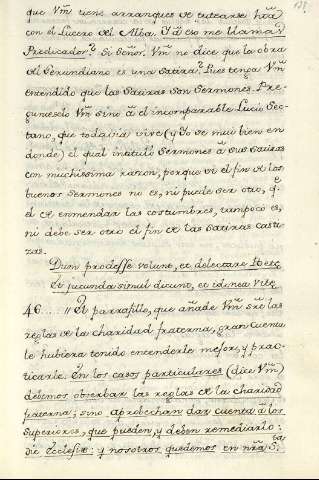 que Vm̃ tiene arranques de tutearse hta
con el Lucero del Alba. I à eso me llama Vm̃
Predicador? Si Señor. Vm̃ no dice que la obra
del Gerundiano es una satira? Pues tenga Vm̃
entendido que las satiras son Sermones. Pre-
gunteselo Vm̃ sino à el incomparable Lucio Sec-
tano, que todavia vive (y Yo se mui bien en
donde) el qual intituló Sermones à sus satiras
con muchissima razon, porque si el fin de los
buenos Sermones no es, ni puede ser otro, q.e
el de enmendar las costumbres, tampoco es,
ni debe ser otro el fin de las satiras casti-
zas.
Dum prodesse volunt, et delectare Poetæ
Et jucunda simul dicunt, et idonea vitæ
46.... // El parrafillo, que añade Vm̃ sre las
reglas de la charidad fraterna, gran cuenta
le hubiera tenido entenderle mejor, y prac-
ticarle. En los casos particulares (dice Vm̃)
debemos observar las reglas de la charidad
fraterna; sino aprobechan dar cuenta à los
Superiores, que pueden, y deben remediarlo:
dic Ecclesiæ: y nosotros quedemos en nrã S.ta